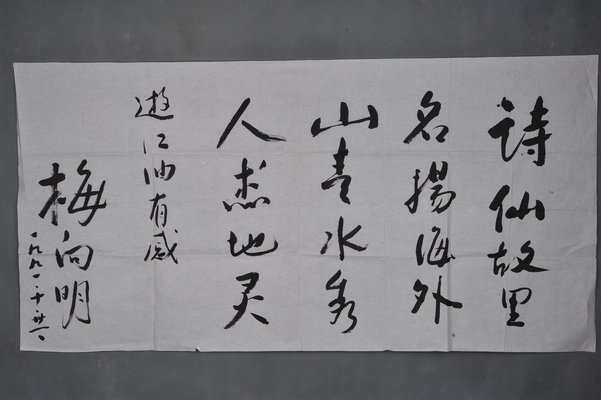 詩仙故里
名揚海外
山青水秀
人杰地灵
遊江油有感
梅向明
一九九一·十·廿六